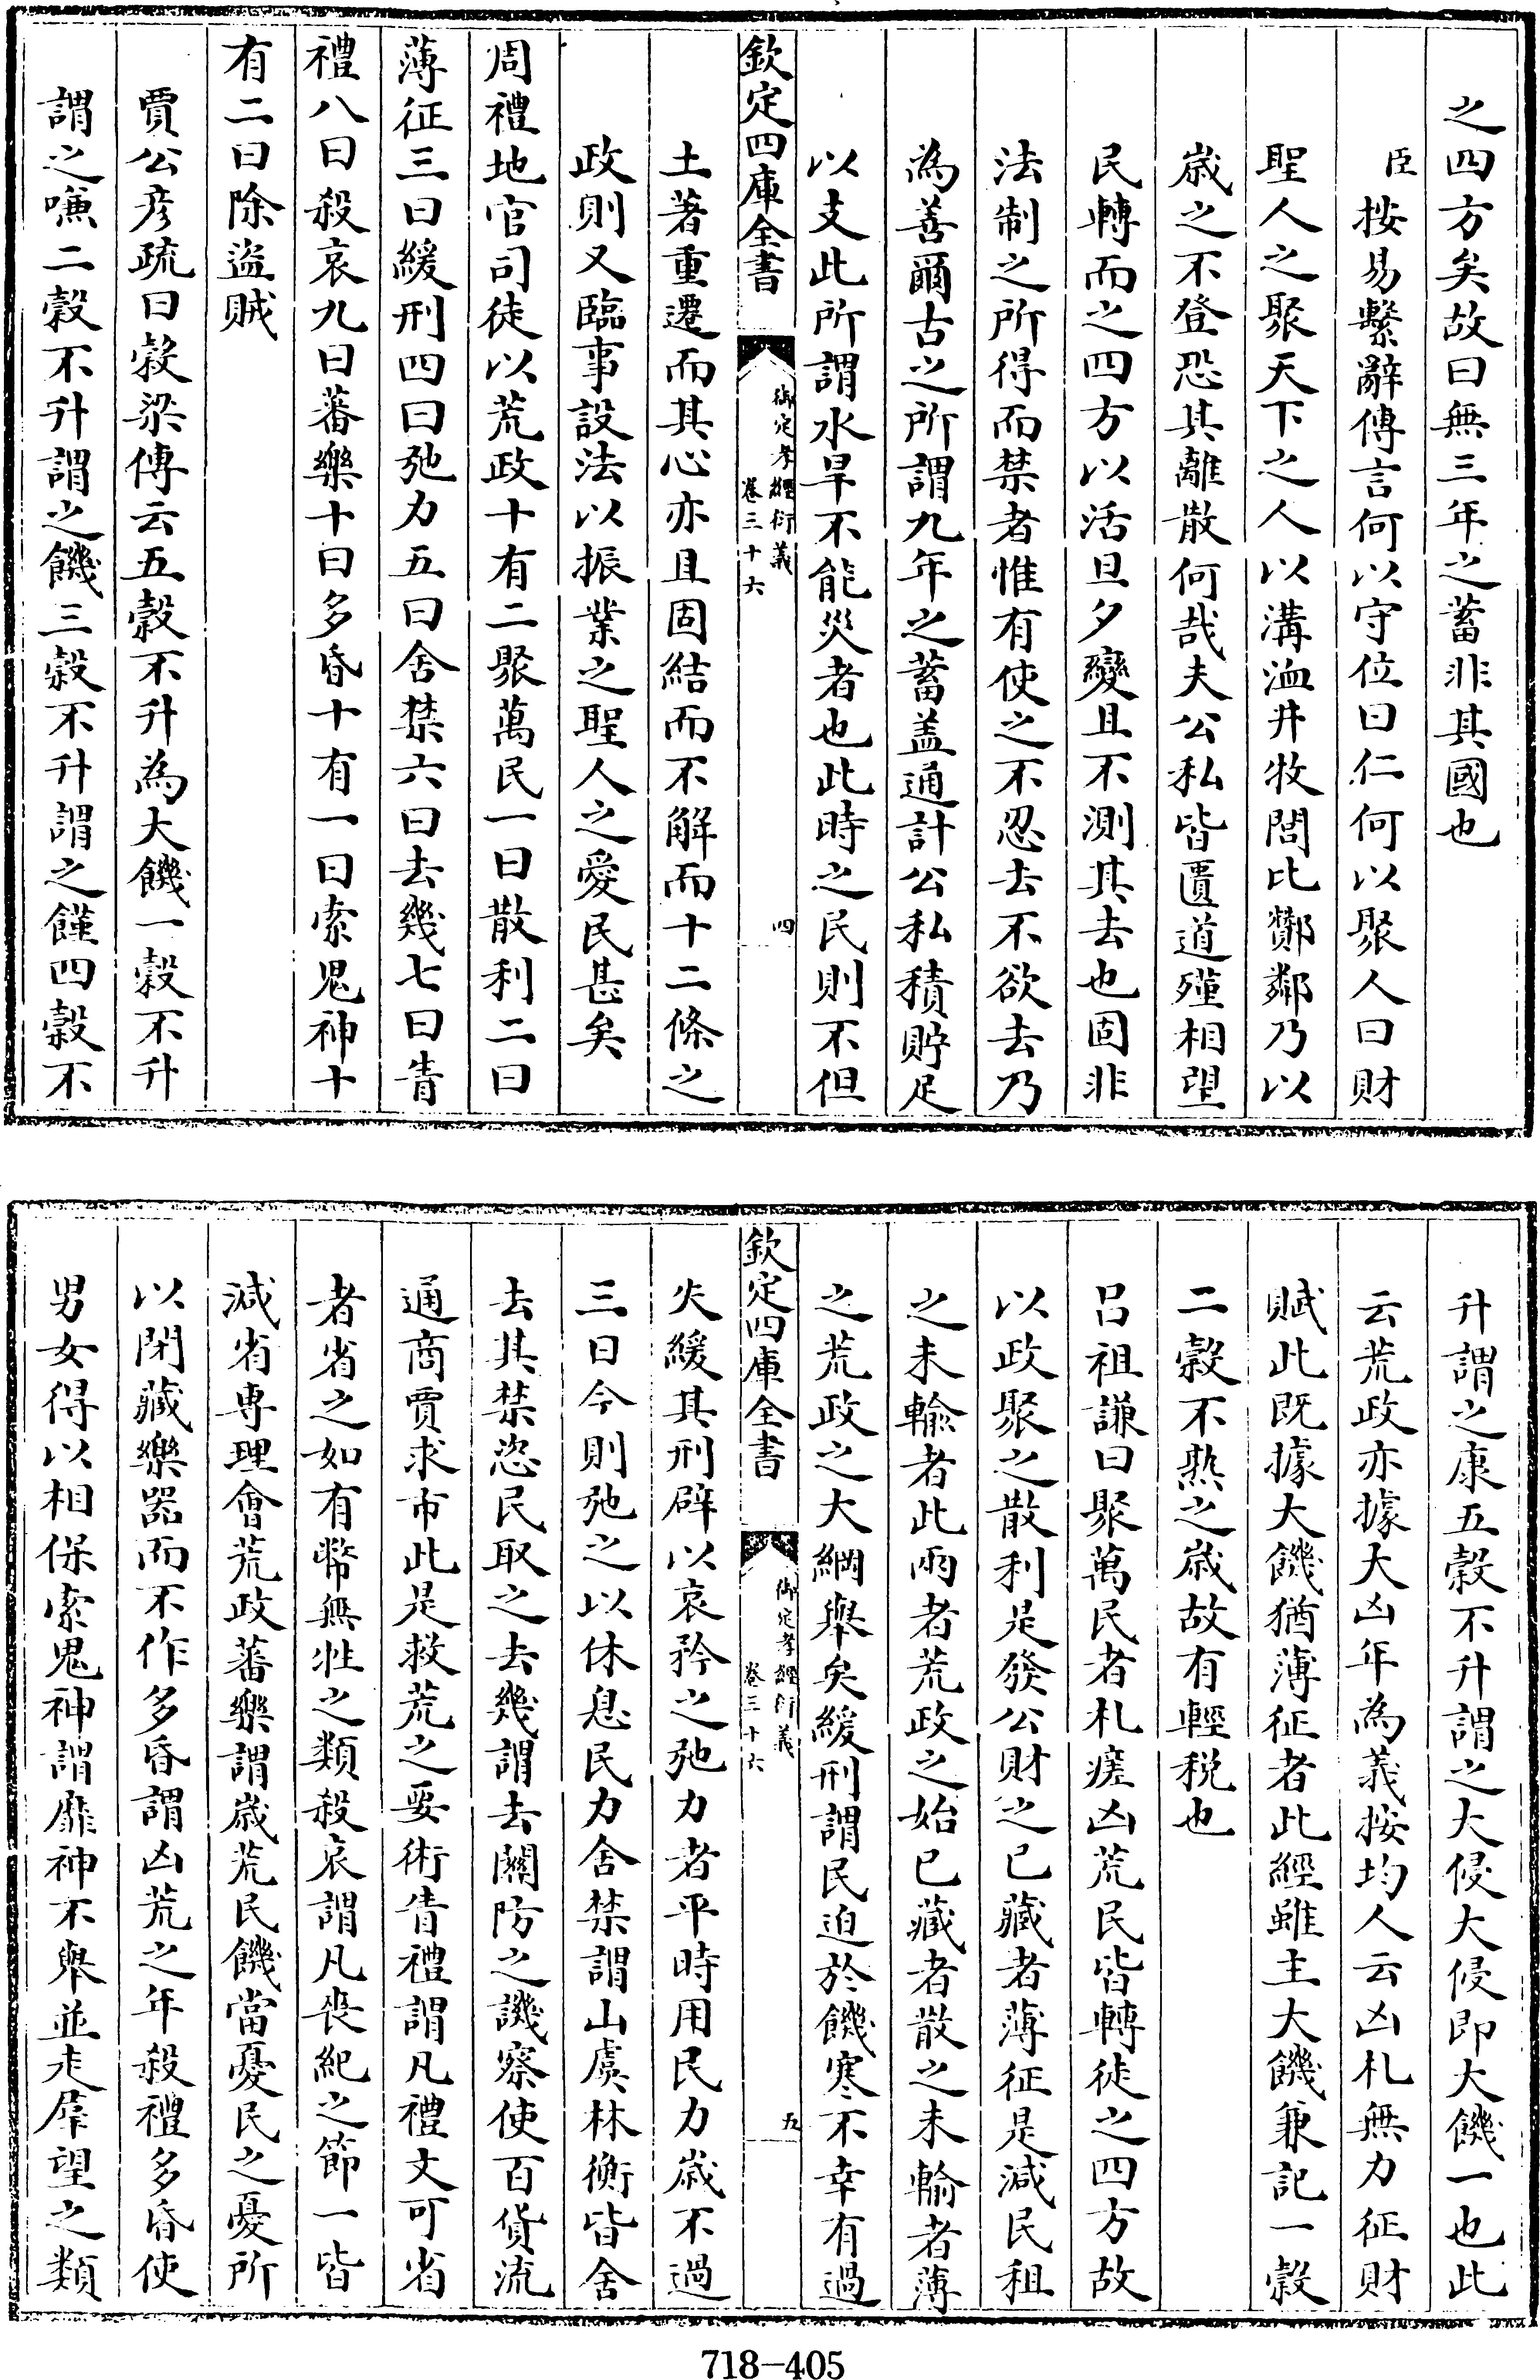 之四方矣故曰無三年之蓄非其國也
臣按易繫辭傳言何以守位曰仁何以聚人曰財
聖人之聚天下之人以溝洫井牧閭比酇鄰乃以
歳之不登恐其離散何哉夫公私皆匱道殣相望
民轉而之四方以活旦夕變且不測其去也固非
法制之所得而禁者惟有使之不忍去不欲去乃
為善爾古之所謂九年之蓄盖通計公私積貯足
以支此所謂水旱不能災者也此時之民則不但
欽定四庫全書
御定孝經衍義
卷三十六
四
土著重遷而其心亦且固結而不解而十二條之
政則又臨事設法以振業之聖人之愛民甚矣
周禮地官司徒以荒政十有二聚萬民一曰散利二曰
薄征三曰緩刑四曰弛力五曰舍禁六曰去幾七曰眚
禮八曰殺哀九曰蕃樂十曰多昏十有一曰索鬼神十
有二曰除盜賊
賈公彦疏曰穀梁傳云五穀不升為大饑一穀不升
謂之嗛二穀不升謂之饑三穀不升謂之饉四穀不
升謂之康五穀不升謂之大侵大侵即大饑一也此
云荒政亦據大凶年為義按均人云凶札無力征財
賦此既據大饑猶薄征者此經雖主大饑兼記一穀
二穀不熟之歳故有輕税也
吕祖謙曰聚萬民者札瘥凶荒民皆轉徙之四方故
以政聚之散利是發公財之已藏者薄征是減民租
之未輸者此兩者荒政之始已藏者散之未輸者薄
之荒政之大綱舉矣緩刑謂民迫於饑寒不幸有過
欽定四庫全書
御定孝經衍義
卷三十六
五
失緩其刑辟以哀矜之弛力者平時用民力歳不過
三日今則弛之以休息民力舍禁謂山虞林衡皆舍
去其禁恣民取之去幾謂去關防之譏察使百貨流
通商賈求市此是救荒之要術眚禮謂凡禮文可省
者省之如有幣無牲之類殺哀謂凡喪紀之節一皆
減省専理會荒政蕃樂謂歳荒民饑當憂民之憂所
以閉藏樂器而不作多昏謂凶荒之年殺禮多昏使
男女得以相保索鬼神謂靡神不舉並走羣望之類
718-405